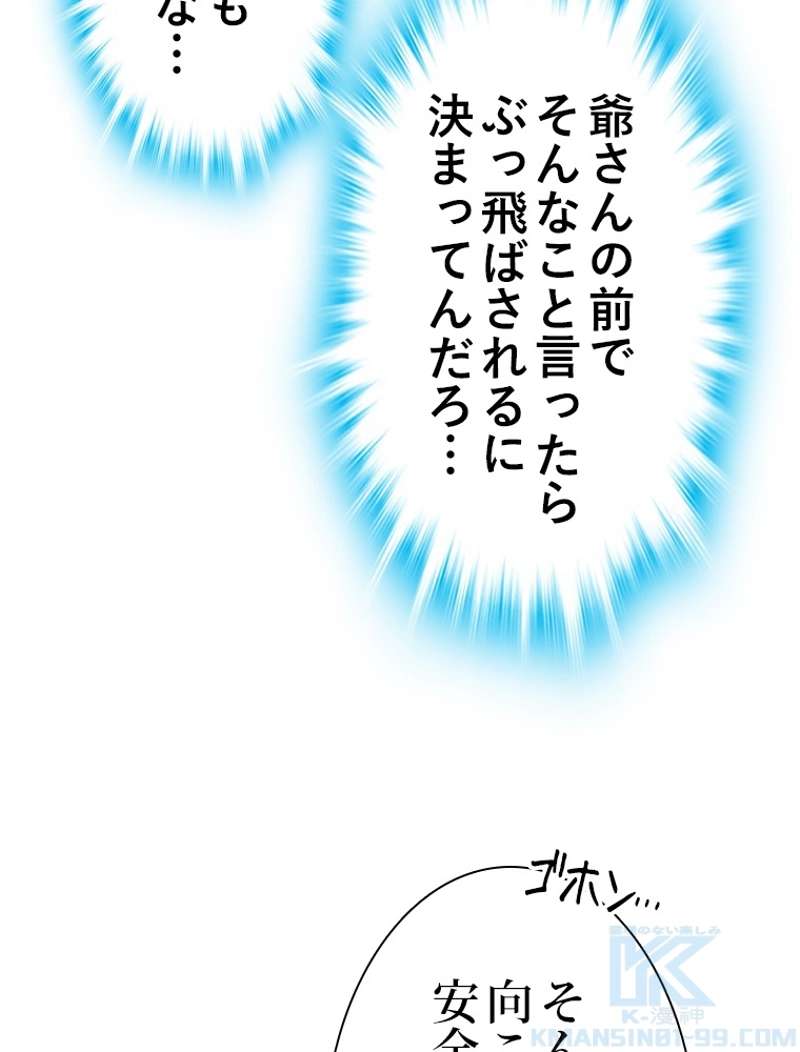 も
な…
爺さんの前で
そんなこと言ったら
ぶっ飛ばされるに
決まってんだろ…
ゴホン…
そん
向こ
安全
K-漫神
KMANSIN01-99.COM